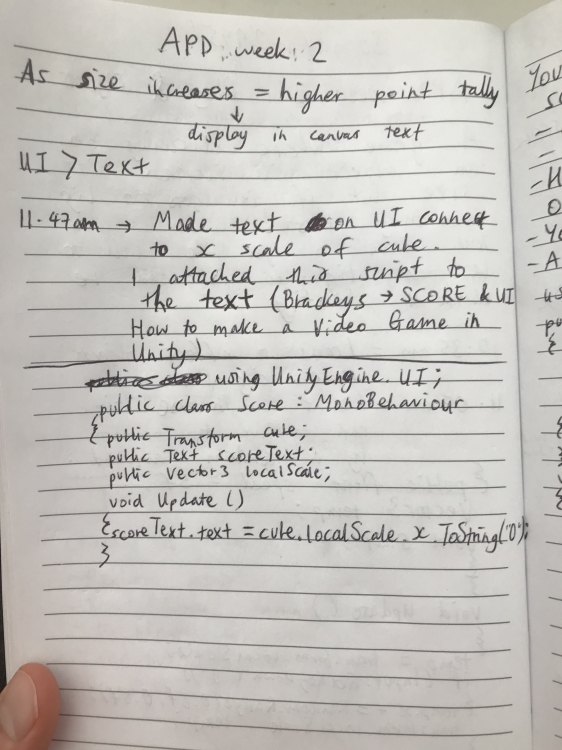 APD week 2
As size increases = higher point tally
↓
display in canvas text
UI > Text
11.47am → Made text on UI connect
to x scale of cube.
I attached this script to
the text (Brackeys → SCORE & UI
How to make a Video Game in
Unity)
using UnityEngine.UI;
public class Score : MonoBehaviour
{ public Transform cube;
public Text scoreText;
public Vector3 localScale;
void Update ()
{scoreText.text = cube.localScale.x.ToString("0");
}
You
- H
O
- Yo
- A
us
pu
{
{
}
{